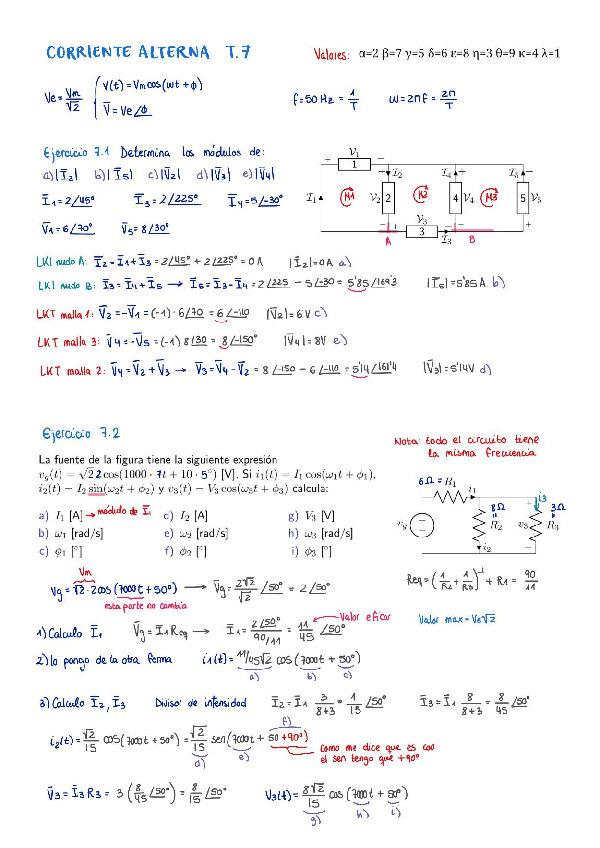 CORRIENTE ALTERNA T.7
Valores: α=2 β=7 γ=5 δ=6 ε=8 η=3 θ=9 κ=4 λ=1
Ve = Vm/√2 { v(t) = Vm cos(wt + ϕ)
V̅ = Ve∠ϕ
f = 50 Hz = 1/T
ω = 2πf = 2π/T
Ejercicio 7.1 Determina los módulos de:
a) |I̅₂| b) |I̅₅| c) |V̅₂| d) |V̅₃| e) |V̅₄|
I̅₁ = 2/45° I̅₃ = 2/225° I̅₄ = 5/-30°
V̅₁ = 6/70° V̅₅ = 8/30°
V₁ 1 I₁ I₂ I₄ I₅ M1 V₂ 2 M2 4 V₄ M3 5 V₅ V₃ 3 I₃ A B
LKI nudo A: I̅₂ = I̅₁ + I̅₃ = 2/45° + 2/225° = 0 A |I̅₂| = 0 A a)
LKI nudo B: I̅₃ = I̅₄ + I̅₅ → I̅₅ = I̅₃ - I̅₄ = 2/225 - 5/-30 = 5'85/169'3 |I̅₅| = 5'85 A b)
LKT malla 1: V̅₂ = -V̅₁ = (-1)·6/70 = 6/-110 |V̅₂| = 6 V c)
LKT malla 3: V̅₄ = -V̅₅ = (-1) 8/30 = 8/-150° |V̅₄| = 8V e)
LKT malla 2: V̅₄ = V̅₂ + V̅₃ → V̅₃ = V̅₄ - V̅₂ = 8/-150 - 6/-110 = 5'14/161'4 |V̅₃| = 5'14V d)
Ejercicio 7.2
Nota: todo el circuito tiene
la misma frecuencia
La fuente de la figura tiene la siguiente expresión
v_g(t) = √2 2 cos(1000 · 7t + 10 · 5°) [V]. Si i₁(t) = I₁ cos(ω₁t + ϕ₁),
i₂(t) = I₂ sin(ω₂t + ϕ₂) y v₃(t) = V₃ cos(ω₃t + ϕ₃) calcula:
a) I₁ [A] → módulo de I̅₁ d) I₂ [A] g) V₃ [V]
b) ω₁ [rad/s] e) ω₂ [rad/s] h) ω₃ [rad/s]
c) ϕ₁ [°] f) ϕ₂ [°] i) ϕ₃ [°]
6Ω = R₁ i₁ i₃ 8Ω = R₂ 3Ω = R₃ v_g v₃ i₂
Vm
Vg = √2·2cos(7000t + 50°) → V̅g = 2√2/√2 /50° = 2/50°
esta parte no cambia
Req = (1/R₂ + 1/R₃)⁻¹ + R₁ = 90/11
1) Calculo I̅₁ V̅g = I̅₁ Req → I̅₁ = 2/50°/90/11 = 11/45 /50° Valor eficaz
Valor max = Ve√2
2) lo pongo de la otra forma i₁(t) = 11/45√2 cos(7000t + 50°)
a) b) c)
3) Calculo I̅₂, I̅₃ Divisor de intensidad I̅₂ = I̅₁ 3/8+3 = 1/15 /50° I̅₃ = I̅₁ 8/8+3 = 8/45 /50°
f)
i₂(t) = √2/15 cos(7000t + 50°) = √2/15 sen(7000t + 50 + 90°)
d) e)
como me dice que es con
el sen tengo que +90°
V̅₃ = I̅₃ R₃ = 3(8/45 /50°) = 8/15 /50° V₃(t) = 8√2/15 cos(7000t + 50°)
g) h) i)